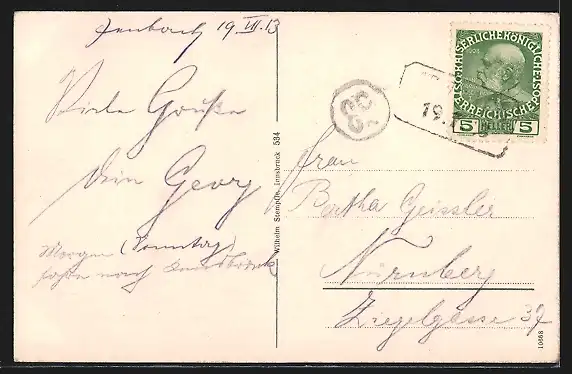 Jenbach 19.VII.13
Viele Grüße
Dein Georg
Morgen (Sonntag)
fahre nach Innsbruck
Wilhelm Stempfle, Innsbruck 534
KAISERLICHE KÖNIGLICHE
ÖSTERREICHISCHE POST
5 HELLER 5
19.
Frau
Bertha Geissler
Nürnberg
Ziegelgasse 37
10668